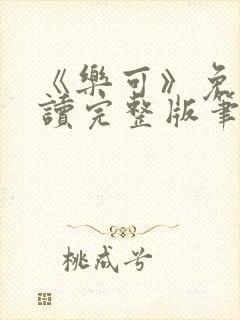 《樂可》免
讀完整版筆
桃成兮